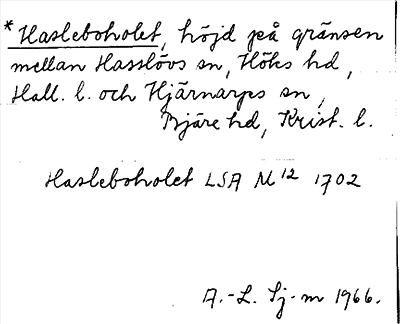 * Hasleboholet, höjd på gränsen
mellan Hasslövs sn, Höks hd,
Hall. l. och Hjärnarps sn,
Bjäre hd, Krist. l.
Hasleboholet LSA M 12 1702
A.-L. Sj-m 1966.